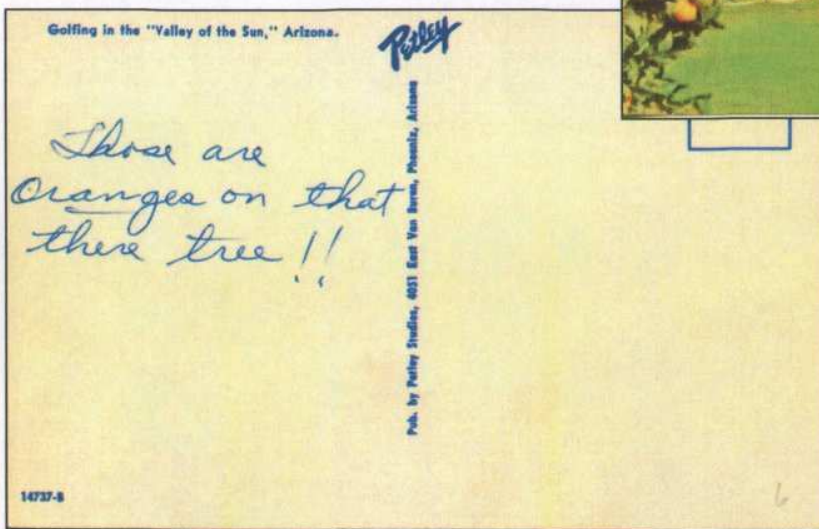 Golfing in the "Valley of the Sun," Arizona.
Petley
Those are
Oranges on that
there tree!!
Pub. by Petley Studios, 4051 East Van Buren, Phoenix, Arizona
14737-B
6